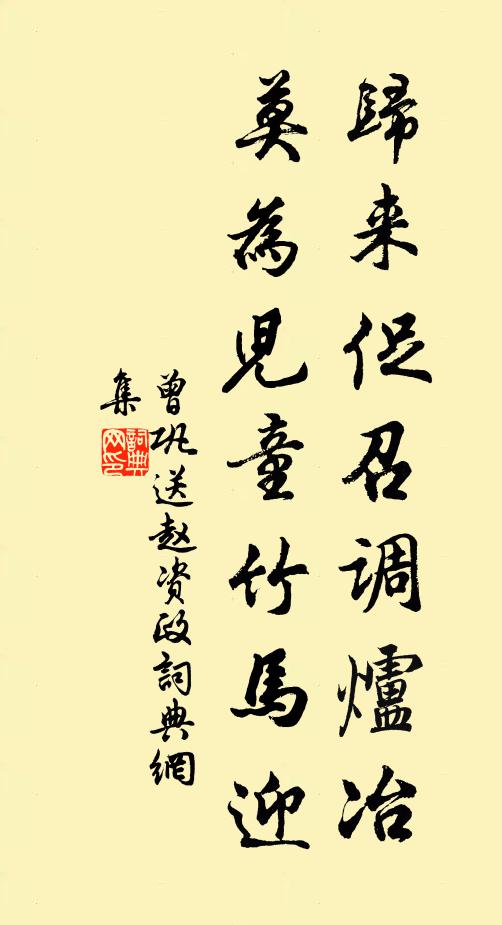 歸来促召調爐冶
莫為兒童竹馬迎
曾巩送赵资政詞典網
集
詞典
网印